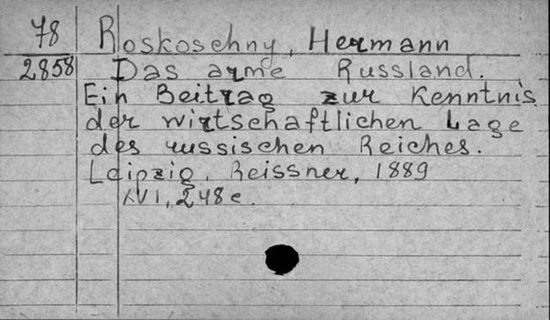 78 Roskoschny, Hermann
2858 Das arme Russland.
Ein Beitrag zur Kenntnis
der wirtschaftlichen Lage
des russischen Reiches.
Leipzig, Reissner, 1889
XVI, 248 c.